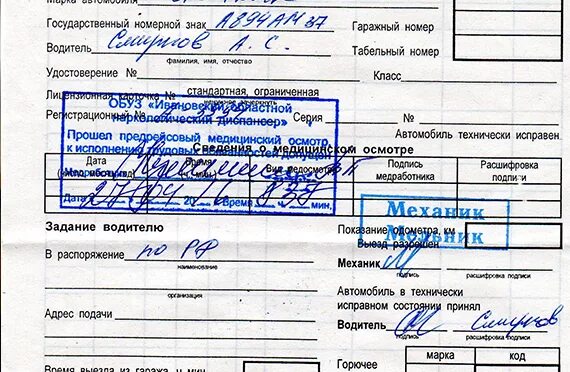 Марка автомобиля
Государственный номерной знак А894АМ37 Гаражный номер
Водитель Смирнов А. С. Табельный номер
фамилия, имя, отчество
Удостоверение № Класс
Лицензионная карточка № стандартная, ограниченная
ненужное зачеркнуть
Регистрационный № Серия №
ОБУЗ «Ивановский областной
наркологический диспансер»
Прошел предрейсовый медицинский осмотр
к исполнению трудовых обязанностей допущен
Автомобиль технически исправен
Сведения о медицинском осмотре
Дата Время Вид медосмотра Подпись Расшифровка
медработника подписи
Дата 27 20 г. Время ч. мин.
Механик
Мельник
Задание водителю
Показание одометра, км
Выезд разрешен
В распоряжение по РФ
наименование
Механик
подпись расшифровка подписи
организация
Автомобиль в технически
исправном состоянии принял
Адрес подачи
Водитель Смирнов
подпись расшифровка подписи
Время выезда из гаража, ч мин
Горючее марка код